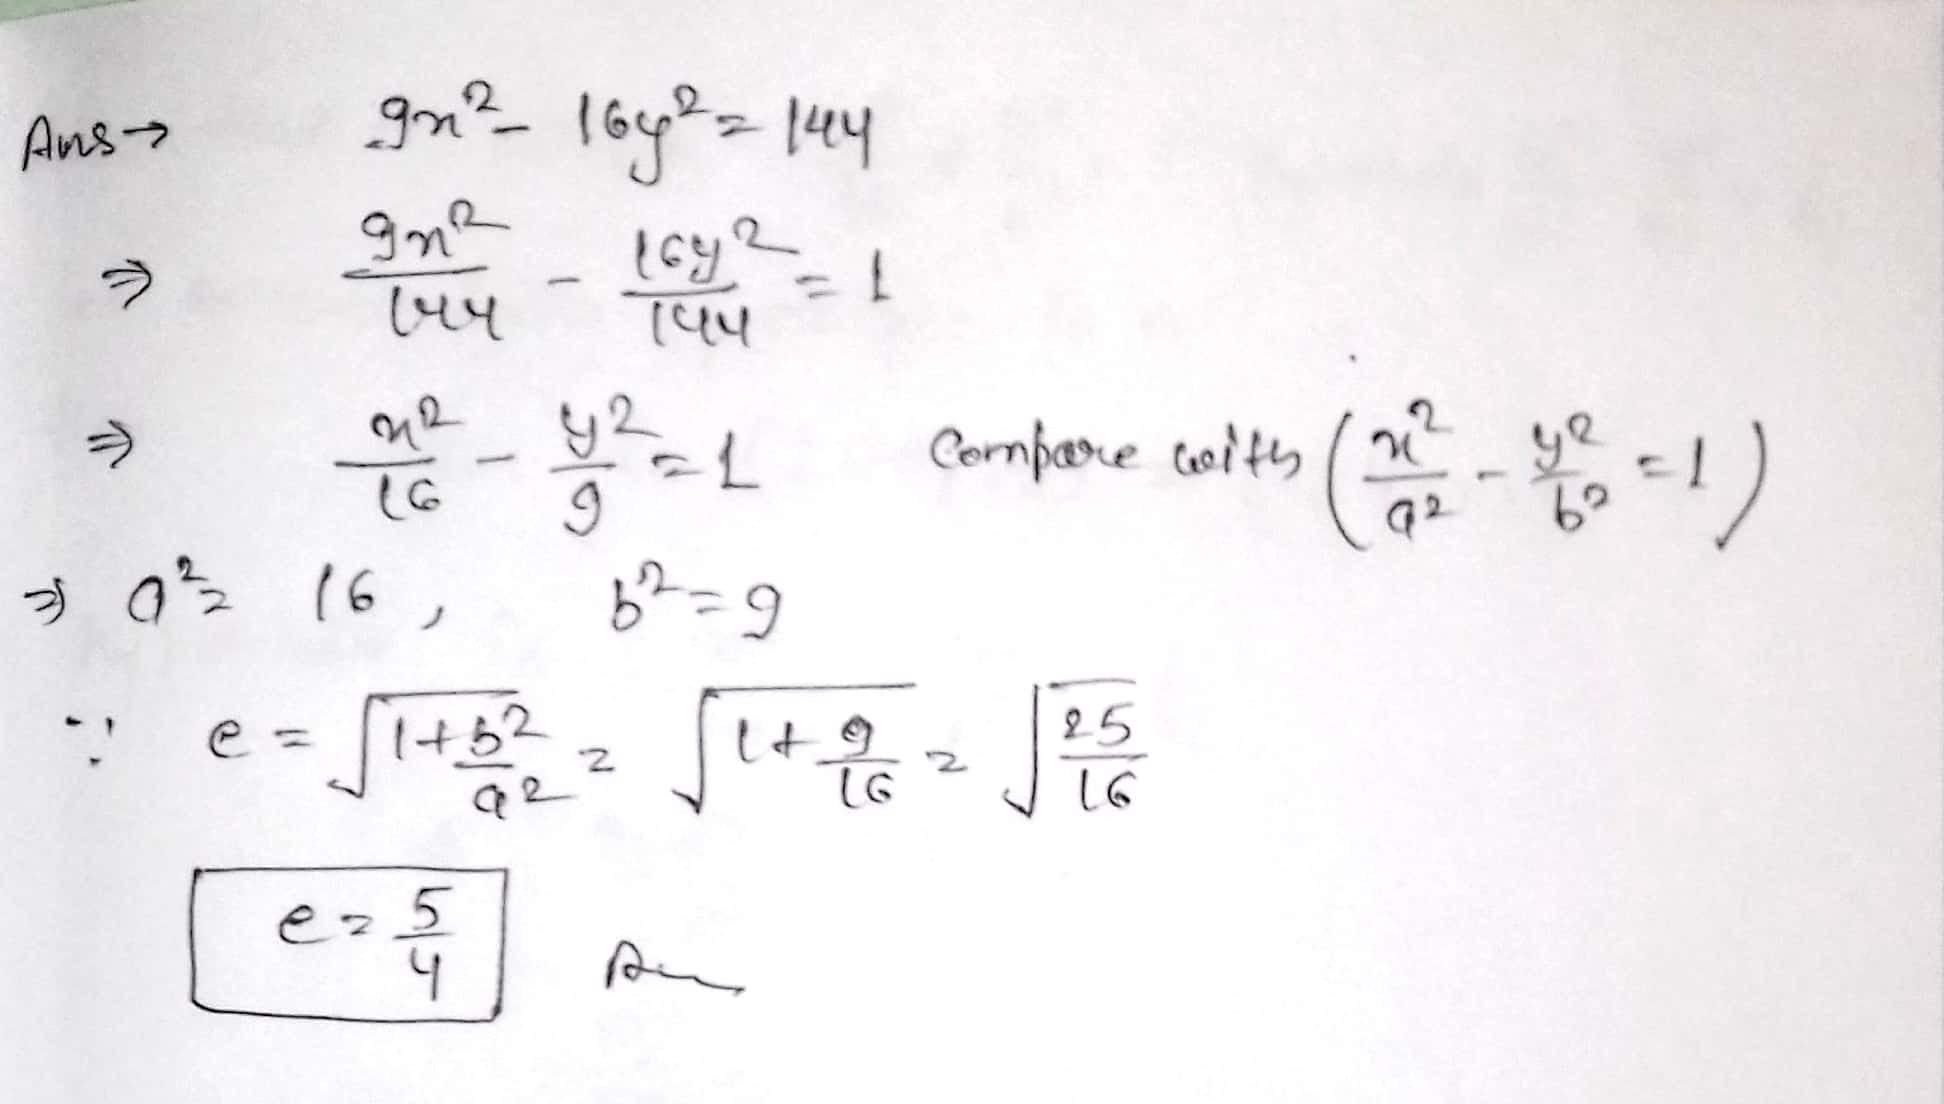 Ans → 9x² - 16y² = 144
⇒ 9x²/144 - 16y²/144 = 1
⇒ x²/16 - y²/9 = 1 Compare with (x²/a² - y²/b² = 1)
⇒ a² = 16, b² = 9
∵ e = √(1+b²/a²) = √(1+9/16) = √(25/16)
e = 5/4 An